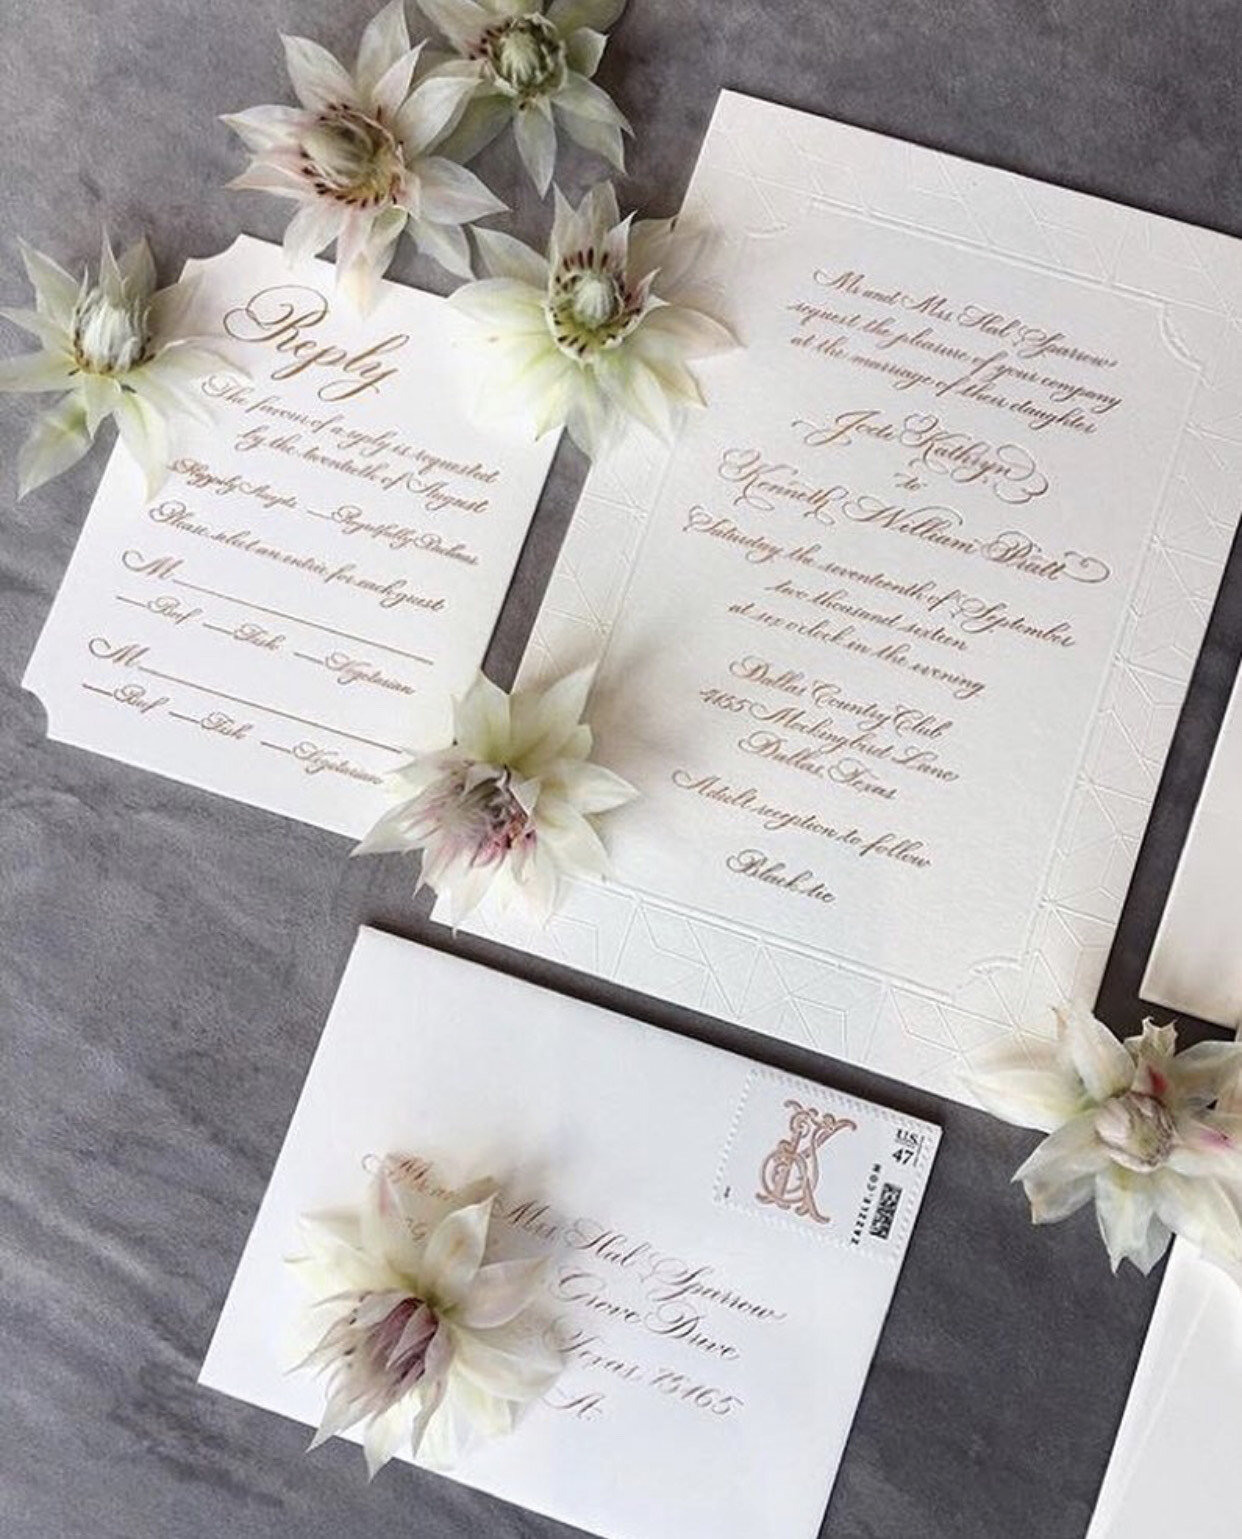 Reply
The favour of a reply is requested
by the twentieth of August
Happily Accepts Regretfully Declines
Please select an entrée for each guest
M
Beef Fish Vegetarian
M
Beef Fish Vegetarian
Mr and Mrs Hal Sparrow
request the pleasure of your company
at the marriage of their daughter
Jodi Kathryn
to
Kenneth William Diatt
Saturday, the seventeenth of September
two thousand sixteen
at six o'clock in the evening
Dallas Country Club
4155 Mockingbird Lane
Dallas, Texas
Adult reception to follow
Black tie
Mrs Hal Sparrow
Grove Drive
Texas 75165
U.S.
47
ZAZZLE.COM